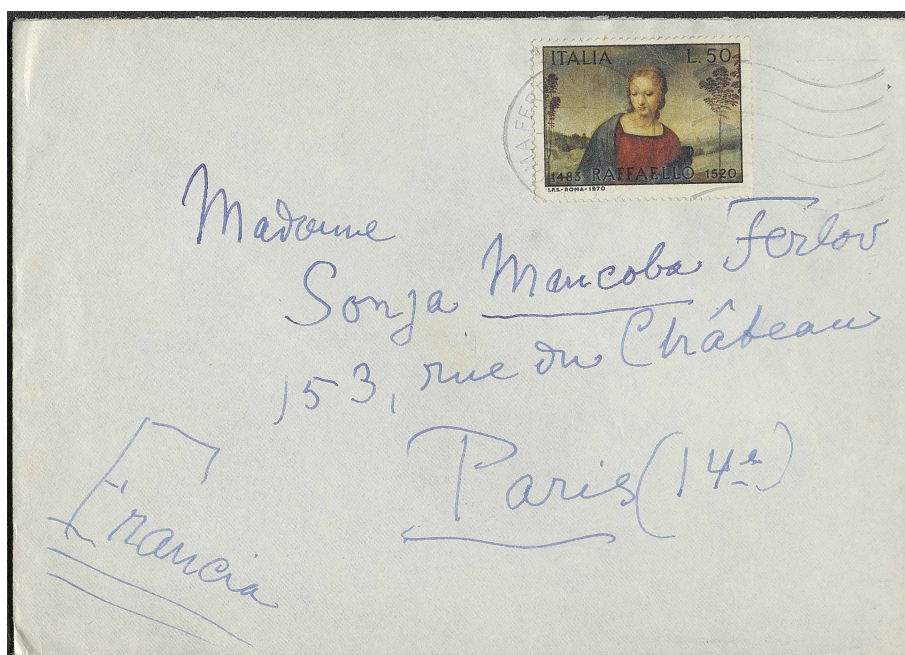 ITALIA L.50
1483 RAFFAELLO 1520
I.P.S.-ROMA-1970
Madame
Sonja Mancoba Ferlov
153, rue du Château
Paris (14e)
Francia